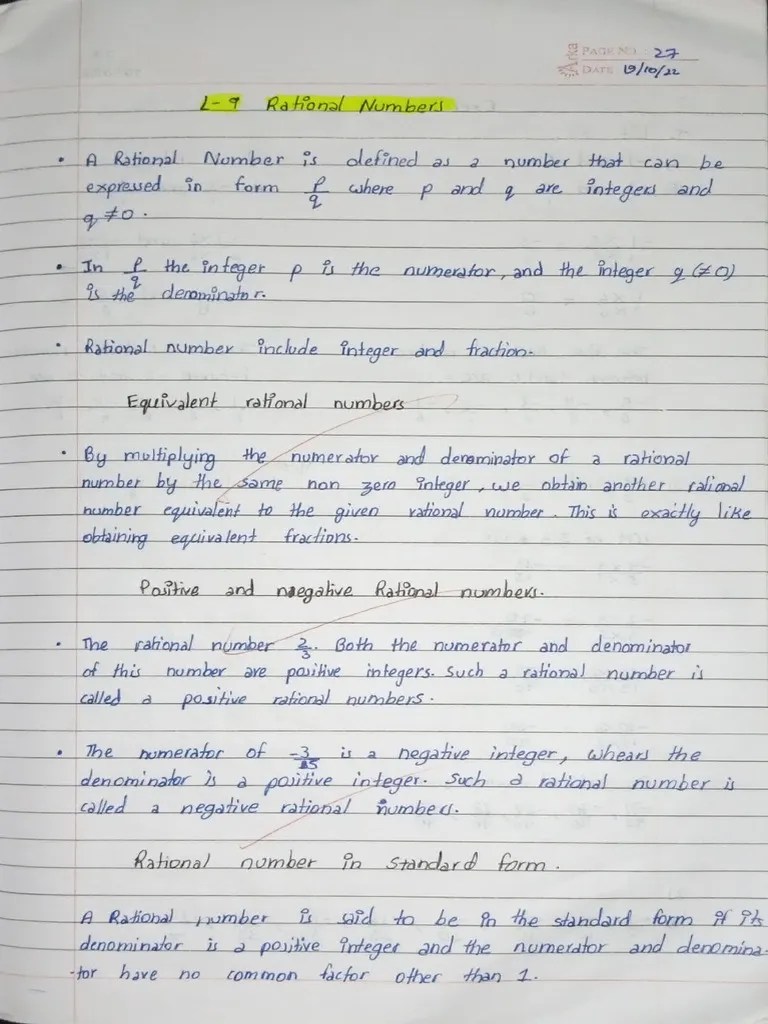 Arka PAGE NO. 27
DATE 19/10/22
L-9 Rational Numbers
• A Rational Number is defined as a number that can be
expressed in form p/q where p and q are integers and
q ≠ 0.
• In p/q the integer p is the numerator, and the integer q (≠0)
is the denominator.
• Rational number include integer and fraction.
Equivalent rational numbers
• By multiplying the numerator and denominator of a rational
number by the same non zero integer, we obtain another rational
number equivalent to the given rational number. This is exactly like
obtaining equivalent fractions.
Positive and negative Rational numbers.
• The rational number 2/3. Both the numerator and denominator
of this number are positive integers. Such a rational number is
called a positive rational numbers.
• The numerator of -3/25 is a negative integer, whears the
denominator is a positive integer. Such a rational number is
called a negative rational numbers.
Rational number in standard form.
A Rational number is said to be in the standard form if its
denominator is a positive integer and the numerator and denomina-
-tor have no common factor other than 1.